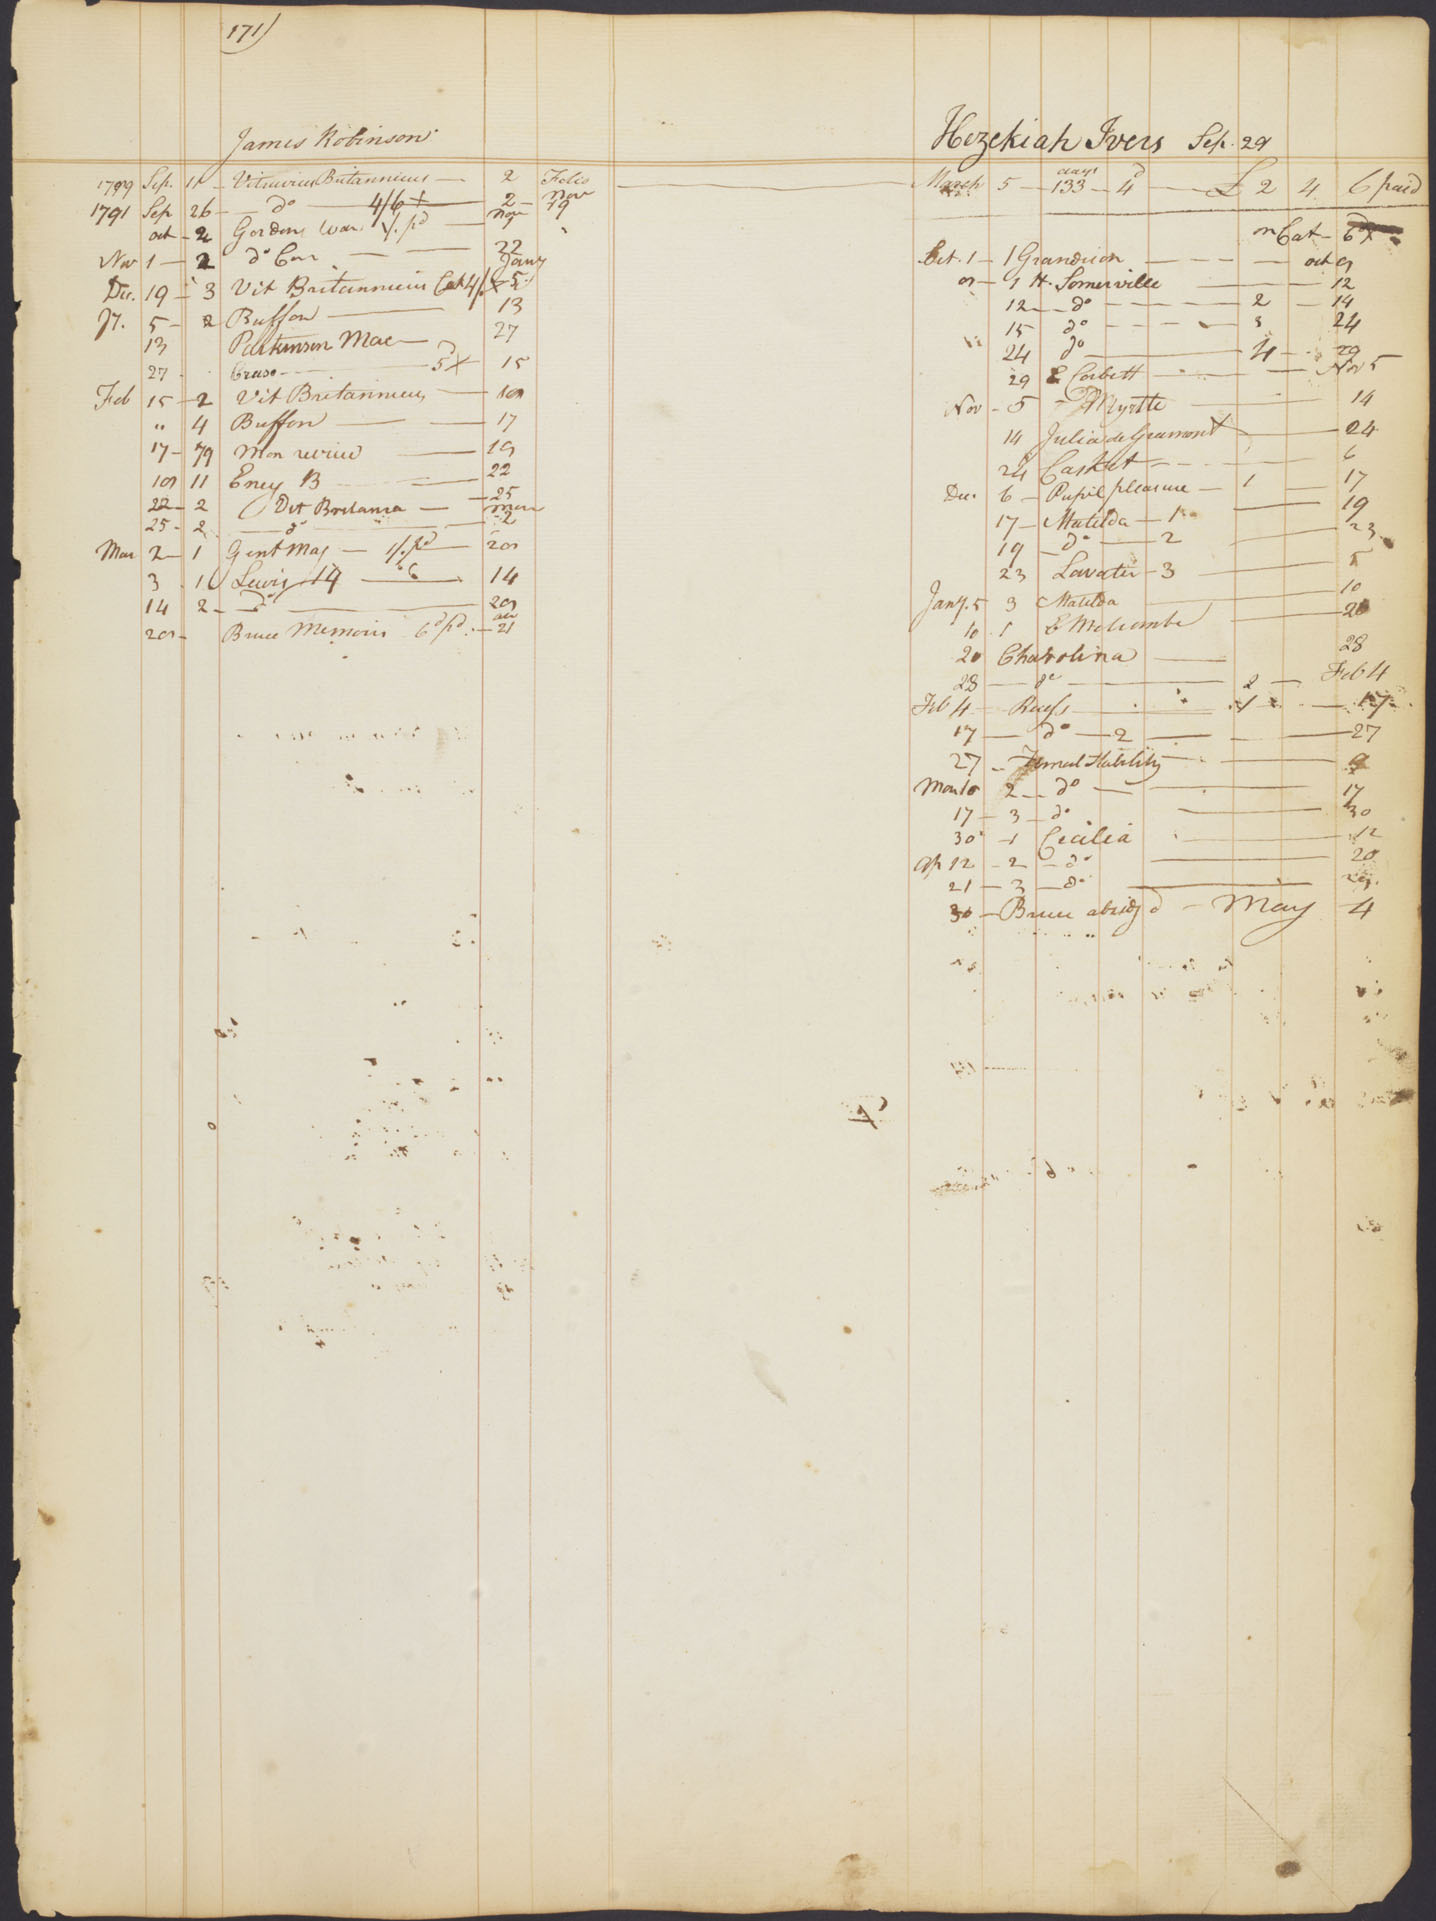 171)
James Robinson
1799 Sep. 11 - Vitruvius Britannicus - 2 Folio
1791 Sep 26 - do 4/6 + 2 - Nov 19
Oct - 2 Gordons War 1/. pd Nov
Nov 1 - 2 do Con 22
Dec. 19 - 3 Vit Britannicus 5 Jany
Jy. 5 - 2 Buffon 13
13 Parkinson Mac 27
27 5d + 15
Feb 15 - 2 Vit Britannicus 17
" 4 Buffon 17
17 - 79 Mon review 19
19 11 Ency B 22
22 - 2 Vit Britania - 25
25 - 2 do 2
Mar 2 - 1 Gent Mag - 1/. pd 29
3 1 Lewis 14 6 14
14 2 - do 29
29 - Bruce Memoirs 6d pd. - 21
Hezekiah Ivers Sep. 29
March 5 - 133 days - 4d £ 2 4 6 paid
Cat - 6d +
Oct. 1 - 1 Grandison Oct 9
9 - 1 H. Somerville 12
12 - do 2 - 14
15 do 3 24
24 do 4 - 29
29 E Corbett Nov 5
Nov - 5 - Myrtle 14
14 Julia de Gramont 24
24 Casket 6
Dec. 6 - Pupil pleasure - 1 - 17
17 - Matilda - 1 19
19 - do - 2 23
23 Lavater - 3 5
Jany. 5 3 Matilda 10
10 1 E Melcombe 20
20 Charolina 28
28 - do 2 - Feb 4
Feb 4 - 1 - 17
17 - do - 2 27
27 - Femal Stability 9
Mar 10 2 - do - 17
17 - 3 - do 30
30 - 1 Cicilia 12
Ap 12 - 2 - do 20
21 - 3 - do 29.
30 - Bruce abridgd - May 4